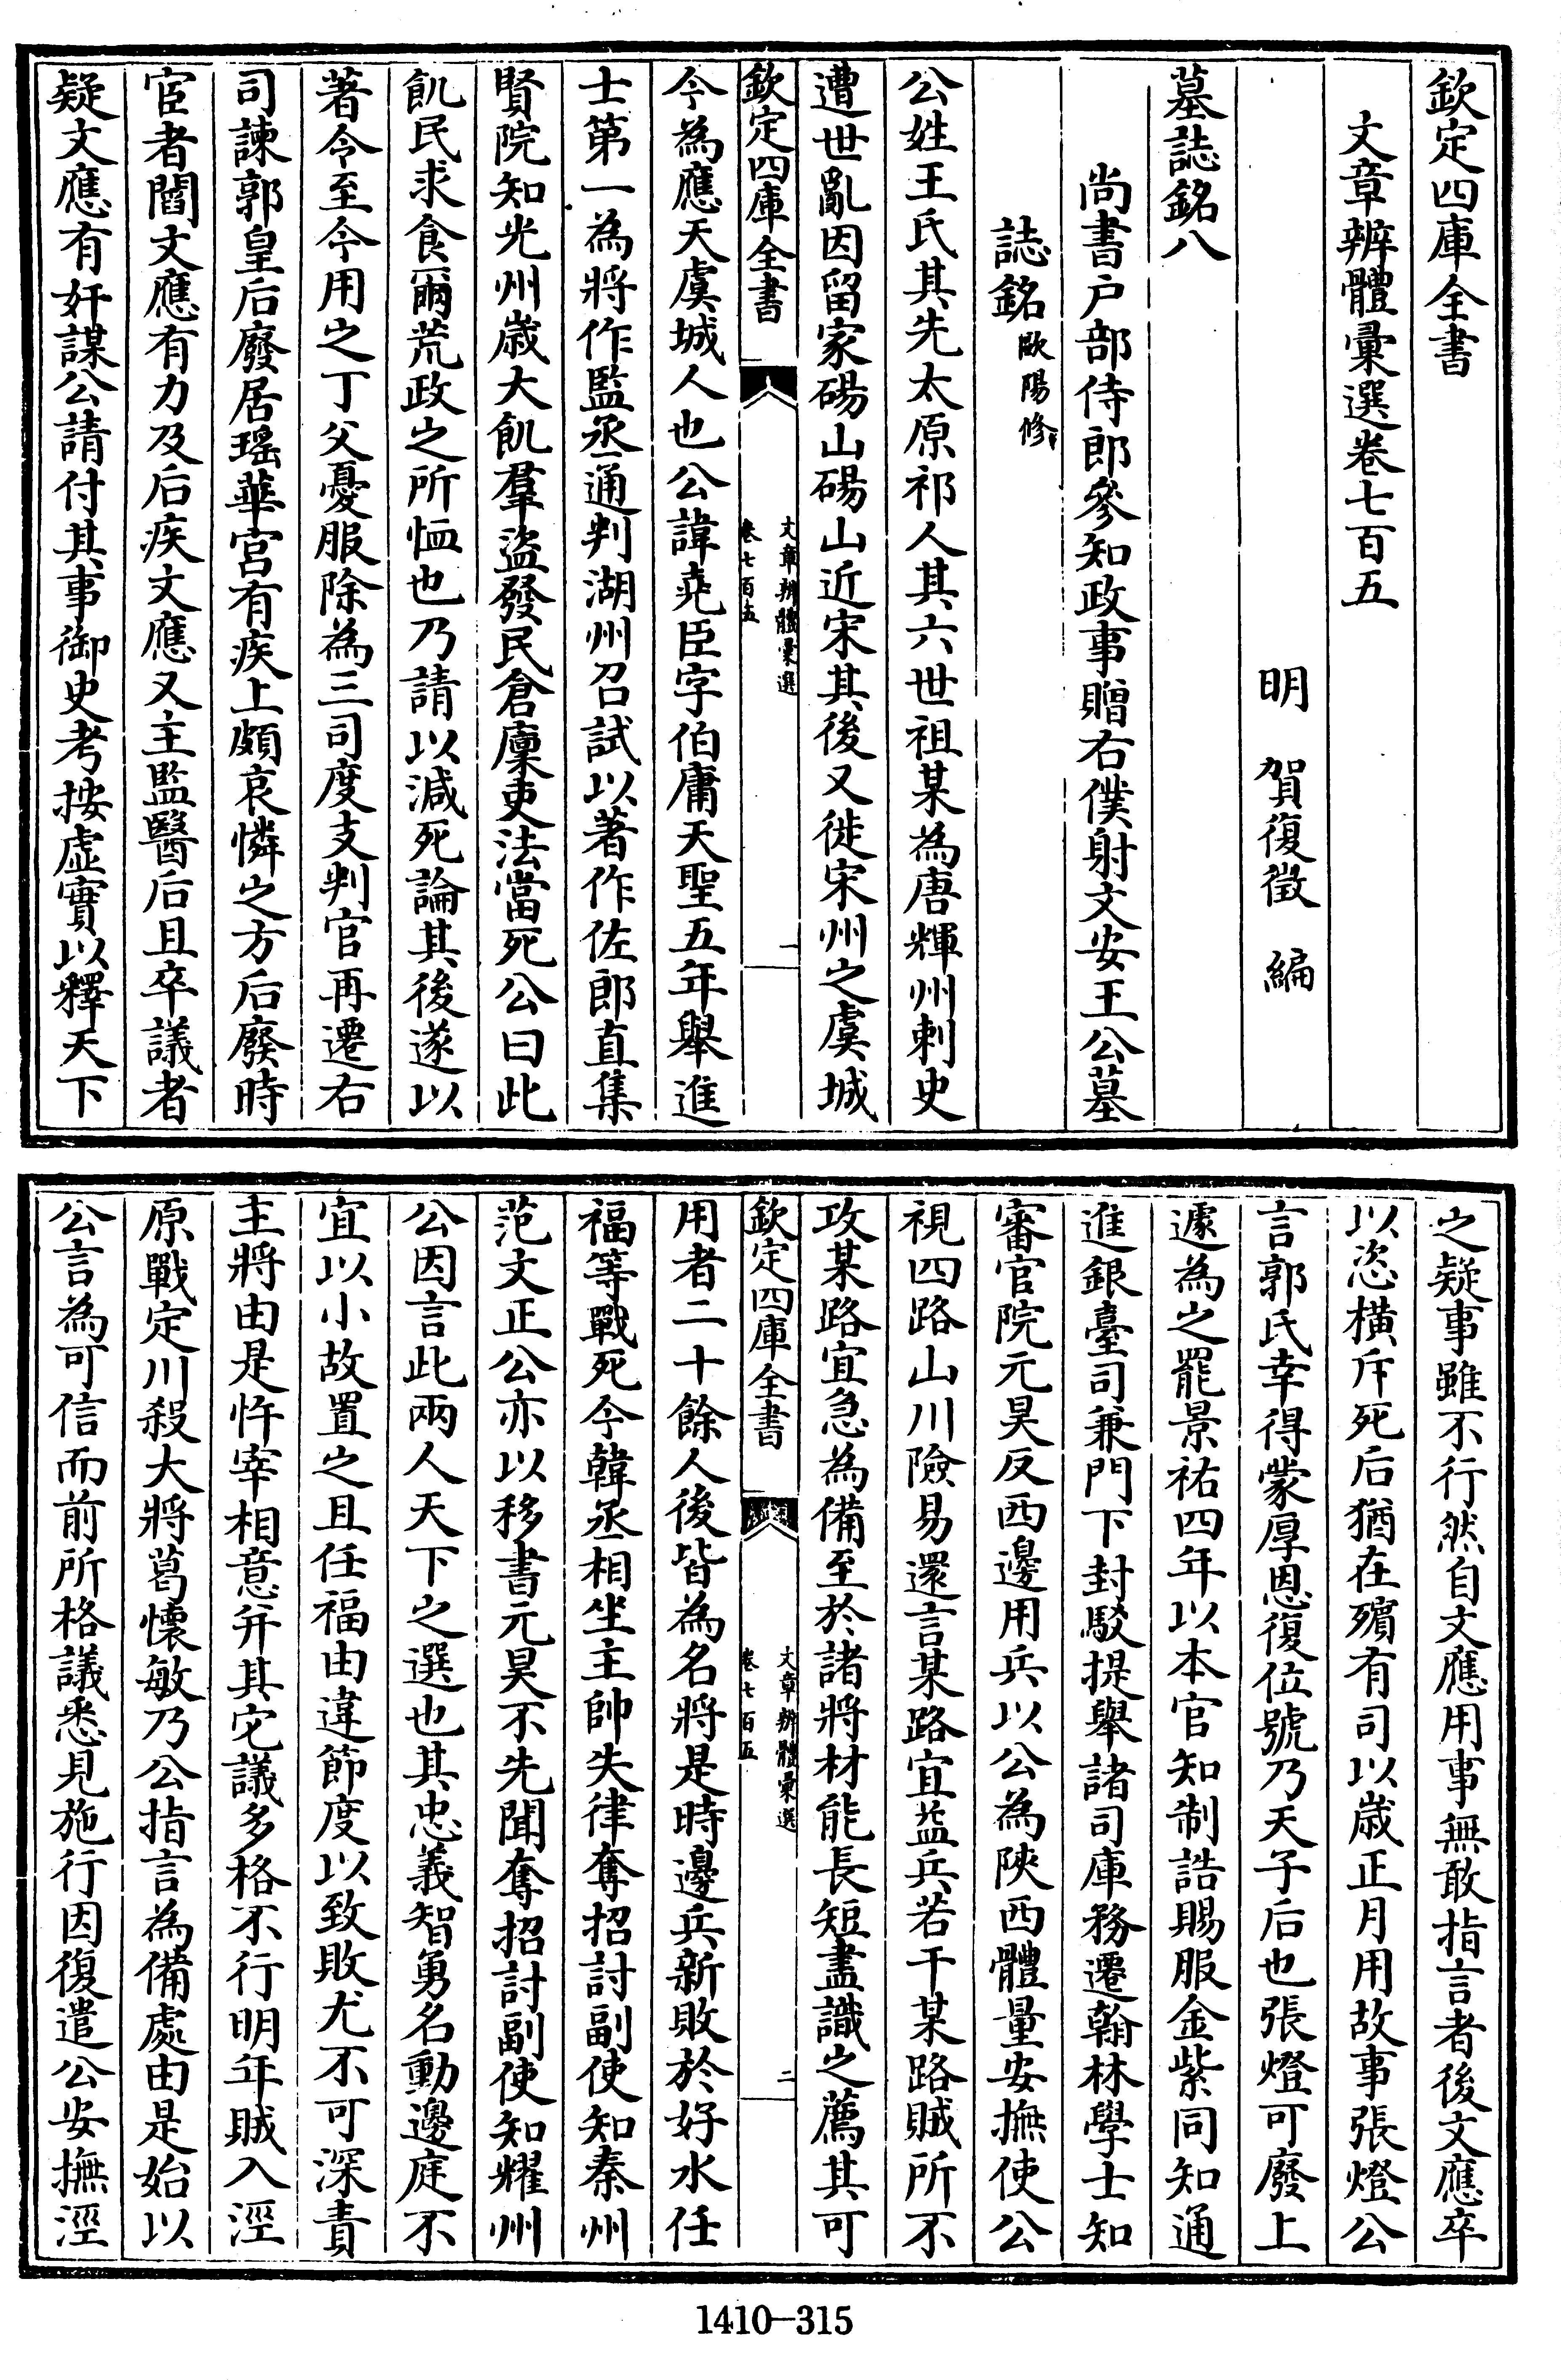 欽定四庫全書
文章辨體彙選卷七百五
明　賀復徵　編
墓誌銘八
尚書户部侍郎參知政事贈右僕射文安王公墓
誌銘歐陽修
公姓王氏其先太原祁人其六世祖某為唐輝州刺史
遭世亂因留家碭山碭山近宋其後又徙宋州之虞城
欽定四庫全書
文章辨體彙選
卷七百五
一
今為應天虞城人也公諱堯臣字伯庸天聖五年舉進
士第一為將作監丞通判湖州召試以著作佐郎直集
賢院知光州歲大飢羣盜發民倉廪吏法當死公曰此
飢民求食爾荒政之所恤也乃請以減死論其後遂以
著令至今用之丁父憂服除為三司度支判官再遷右
司諫郭皇后廢居瑶華宮有疾上頗哀憐之方后廢時
宦者閻文應有力及后疾文應又主監醫后且卒議者
疑文應有奸謀公請付其事御史考按虛實以釋天下
之疑事雖不行然自文應用事無敢指言者後文應卒
以恣橫斥死后猶在殯有司以歲正月用故事張燈公
言郭氏幸得蒙厚恩復位號乃天子后也張燈可廢上
遽為之罷景祐四年以本官知制誥賜服金紫同知通
進銀臺司兼門下封駁提舉諸司庫務遷翰林學士知
審官院元昊反西邊用兵以公為陝西體量安撫使公
視四路山川險易還言某路宜益兵若干某路賊所不
攻某路宜急為備至於諸將材能長短盡識之薦其可
欽定四庫全書
文章辨體彙選
卷七百五
二
用者二十餘人後皆為名將是時邊兵新敗於好水任
福等戰死今韓丞相坐主帥失律奪招討副使知秦州
范文正公亦以移書元昊不先聞奪招討副使知耀州
公因言此兩人天下之選也其忠義智勇名動邊庭不
宜以小故置之且任福由違節度以致敗尤不可深責
主將由是忤宰相意并其它議多格不行明年賊入涇
原戰定川殺大將葛懷敏乃公指言為備處由是始以
公言為可信而前所格議悉見施行因復遣公安撫涇
1410-315